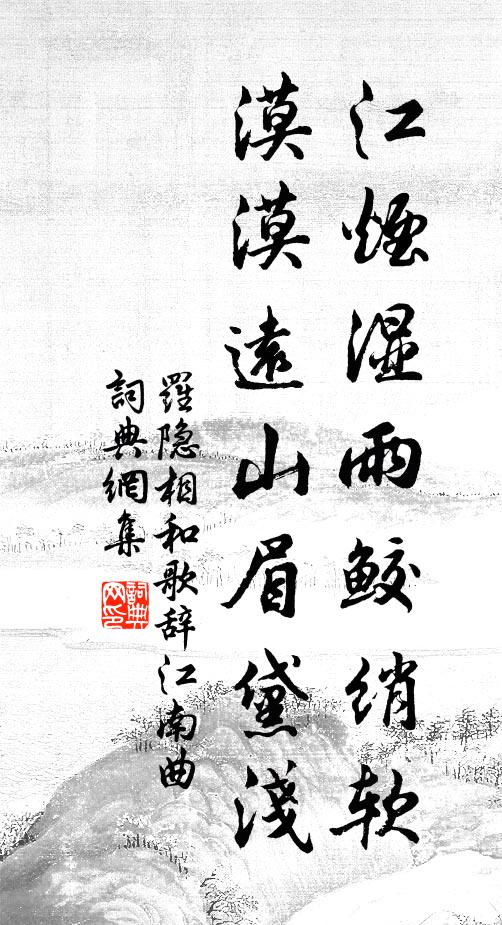 江煙湿雨鲛绡软
漠漠遠山眉黛淺
羅隐相和歌辞江南曲
詞典網集
詞典网印